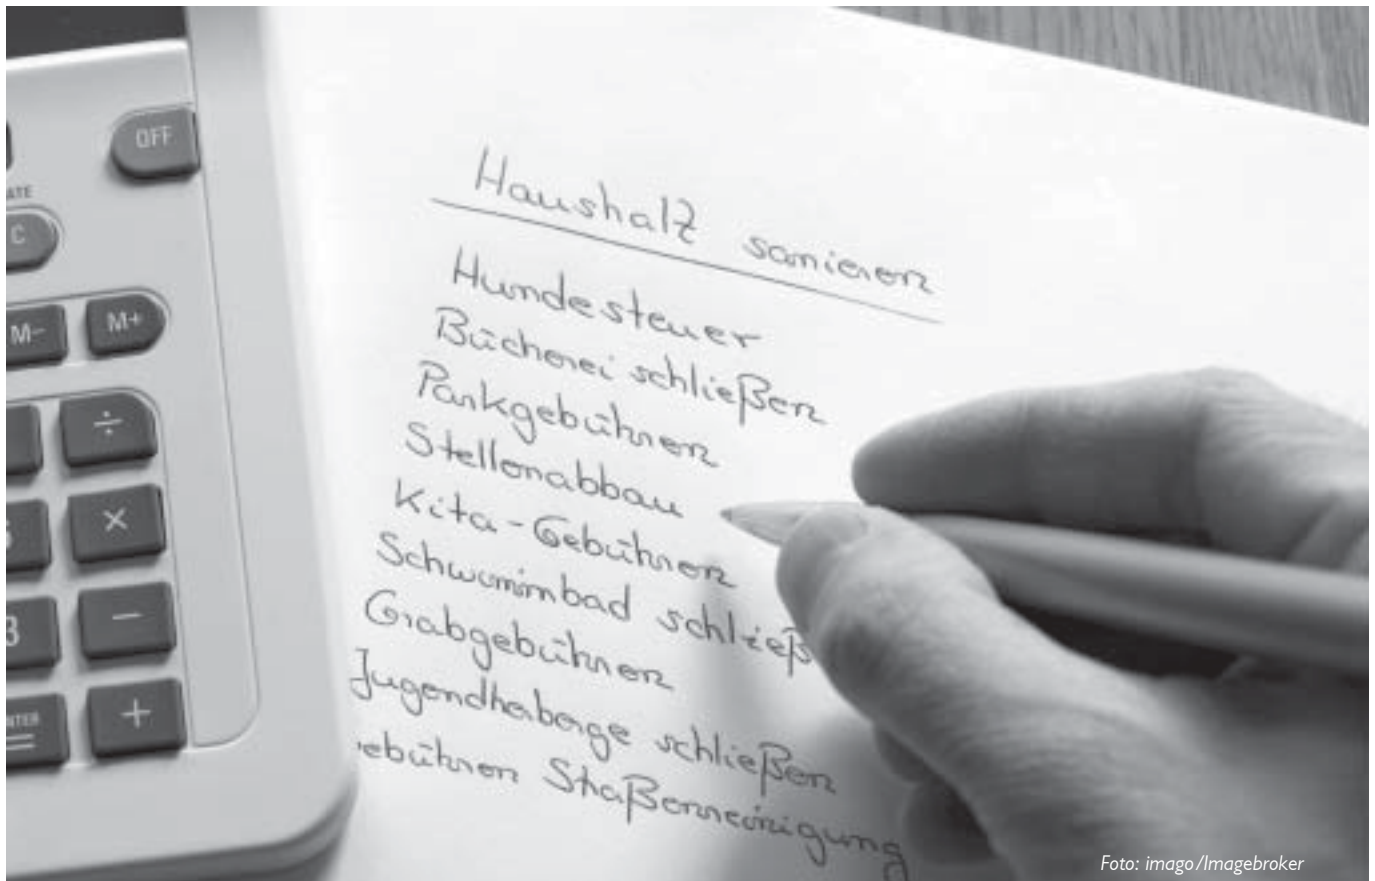 OFF
ATE
C
M-
M+
÷
×
3
−
NTER
=
+
Haushalt sanieren
Hundesteuer
Bücherei schließen
Parkgebühren
Stellenabbau
Kita-Gebühren
Schwimmbad schließ
Grabgebühren
Jugendherberge schließen
ebühren Staßenreinigung
Foto: imago/Imagebroker